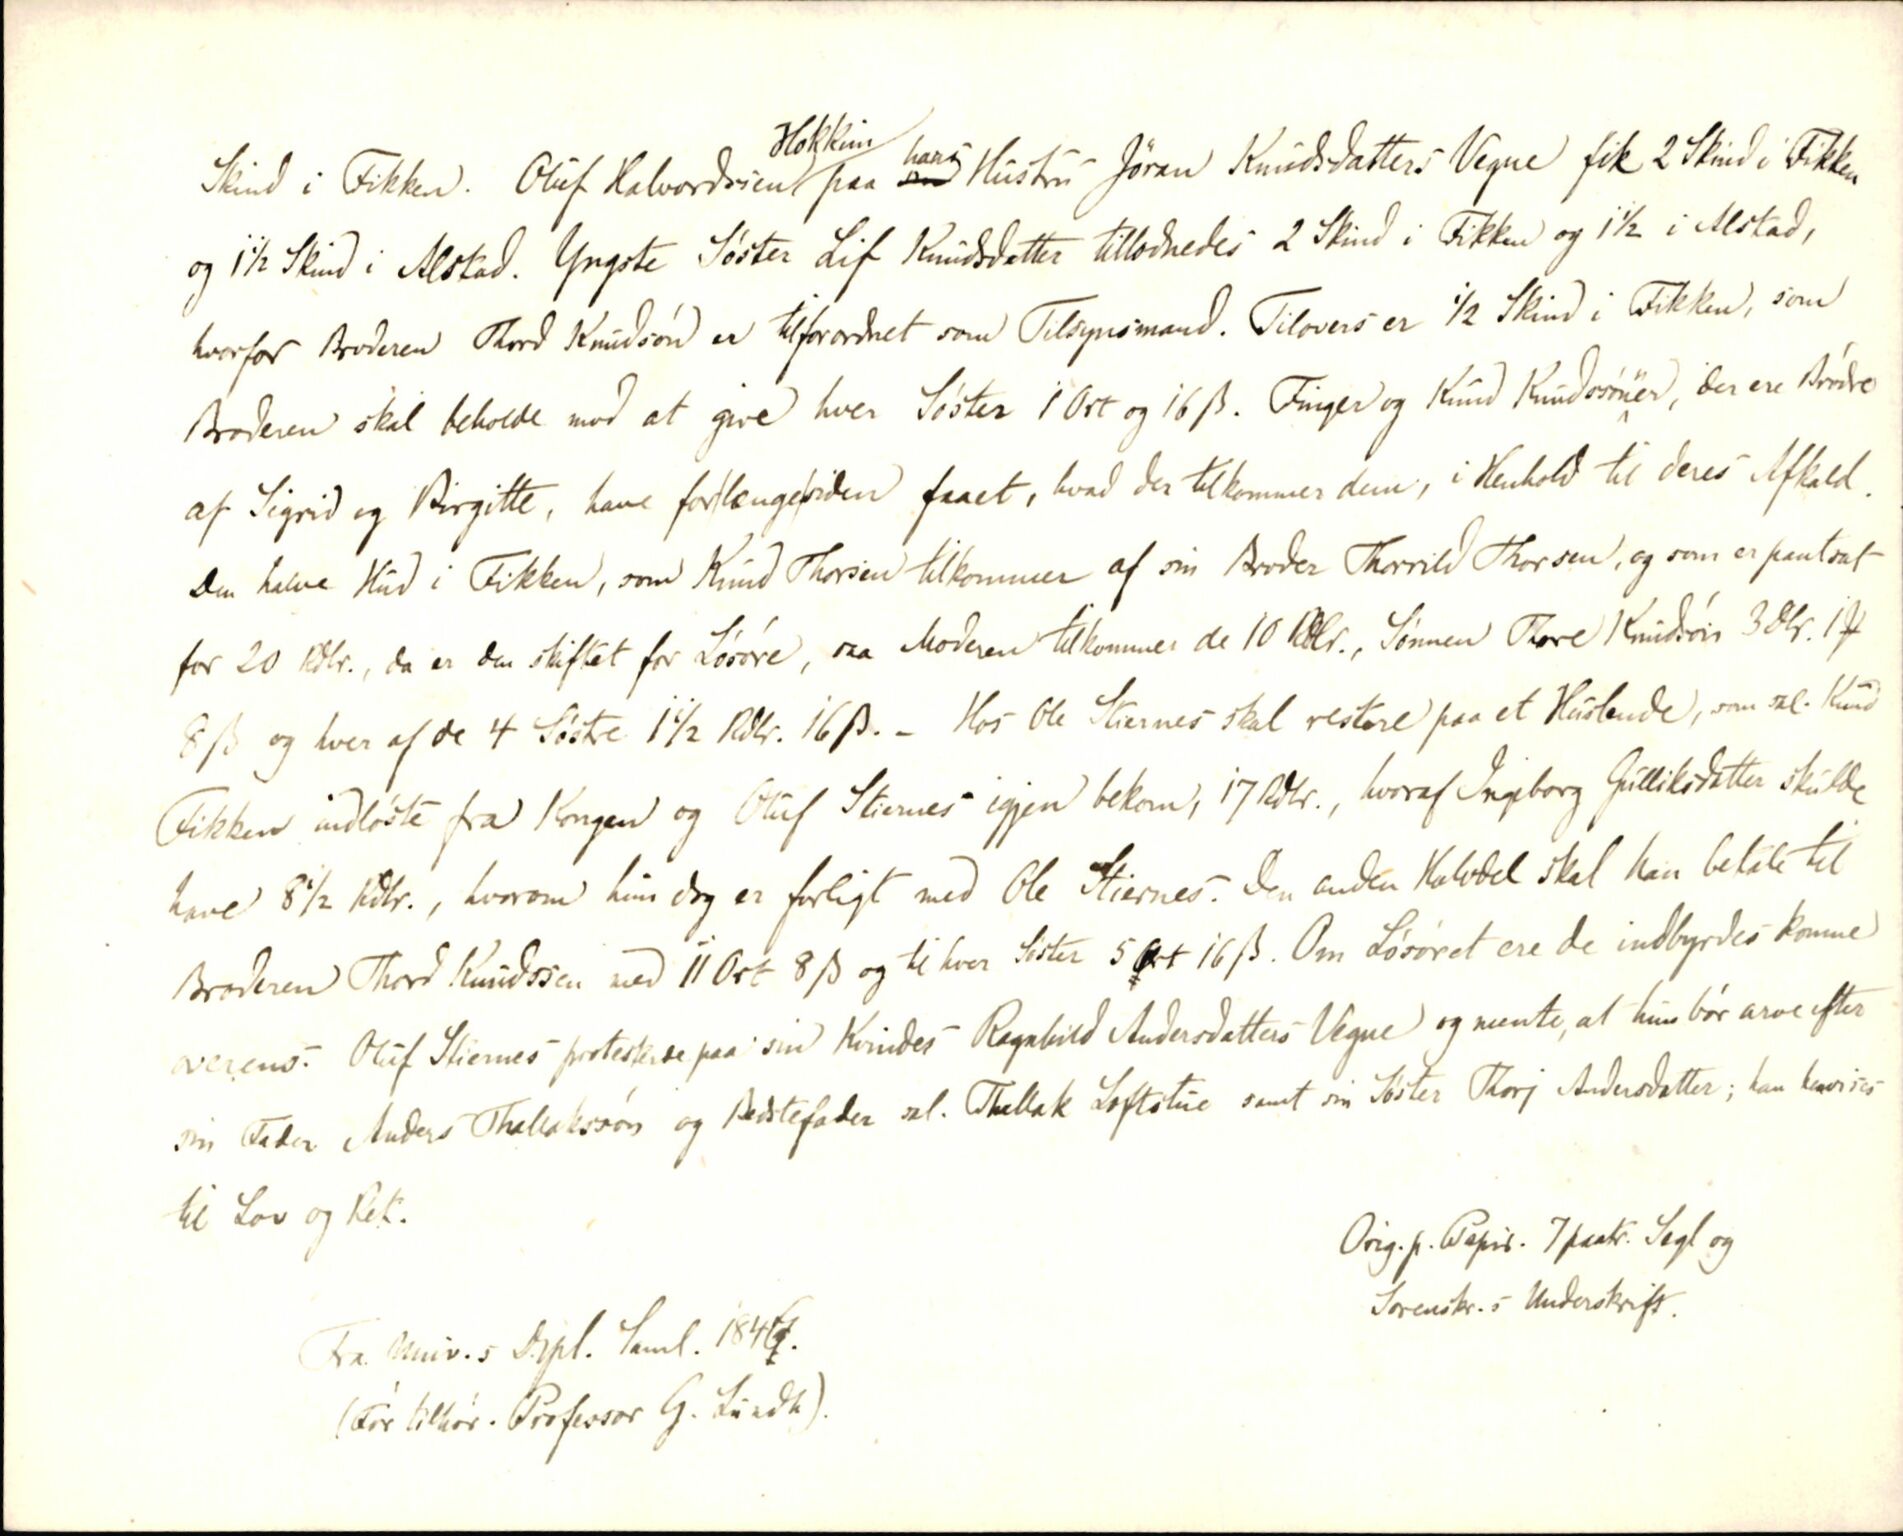 Skind i Fikken. Oluf Halvordssen Hokkim paa hans Hustru Jöran Knudsdatters Vegne fik 2 Skind i Fikken
og 1 1/2 Skind i Alstad. Yngste Søster Lif Knudsdatter tillodnedes 2 Skind i Fikken og 1 1/2 i Alstad,
hvorfor Broderen Thord Knudsøn er tilforordnet som Tilsynsmand. Tilovers er 1/2 Skind i Fikken, som
Broderen skal beholde mod at give hver Søster 1 Ort og 16 β. Finger og Knud Knudssønner, der ere Brødre
af Sigrid og Birgitte, have forlængesiden faaet, hvad der tilkommer dem, i Henhold til deres Afkald.
Den halve Hud i Fikken, som Knud Thorsen tilkommer af sin Broder Thorrild Thorsen, og som er pantsat
for 20 Rdlr., da er den skiftet for Løsøre, saa Moderen tilkommer de 10 Rdlr., Sønnen Thore Knudsøn 3 dlr. 1
8 β og hver af de 4 Søstre 1 1/2 Rdlr. 16 β. – Hos Ole Stiernes skal restere paa et Huslende, som sal. Knud
Fikken indløste fra Kongen og Oluf Stiernes igjen bekom, 17 Rdlr., hvoraf Ingeborg Gulliksdatter skulde
have 8 1/2 Rdlr., hvorom hun dog er forligt med Ole Stiernes. Den anden Halvdel skal han betale til
Broderen Thord Knudssen med 11 Ort 8 β og til hver Søster 5 Ort 16 β. Om Løsøret ere de indbyrdes komne
overens. Oluf Stiernes protesterde paa sin Kvindes Ragnhild Andersdatters Vegne og mente, at hun bør arve efter
sin Fader Anders Thallakssøn og Bedstefader sal. Thallak Loftstue samt sin Søster Thorj Andersdatter; han henvises
til Lov og Ret.
Orig. p. Papir. 7 paatr. Segl og
Sorenskr.s Underskrift.
Fra Univ.s Dipl. Saml. 184
(Før tilhør. Professor G. Lundh).